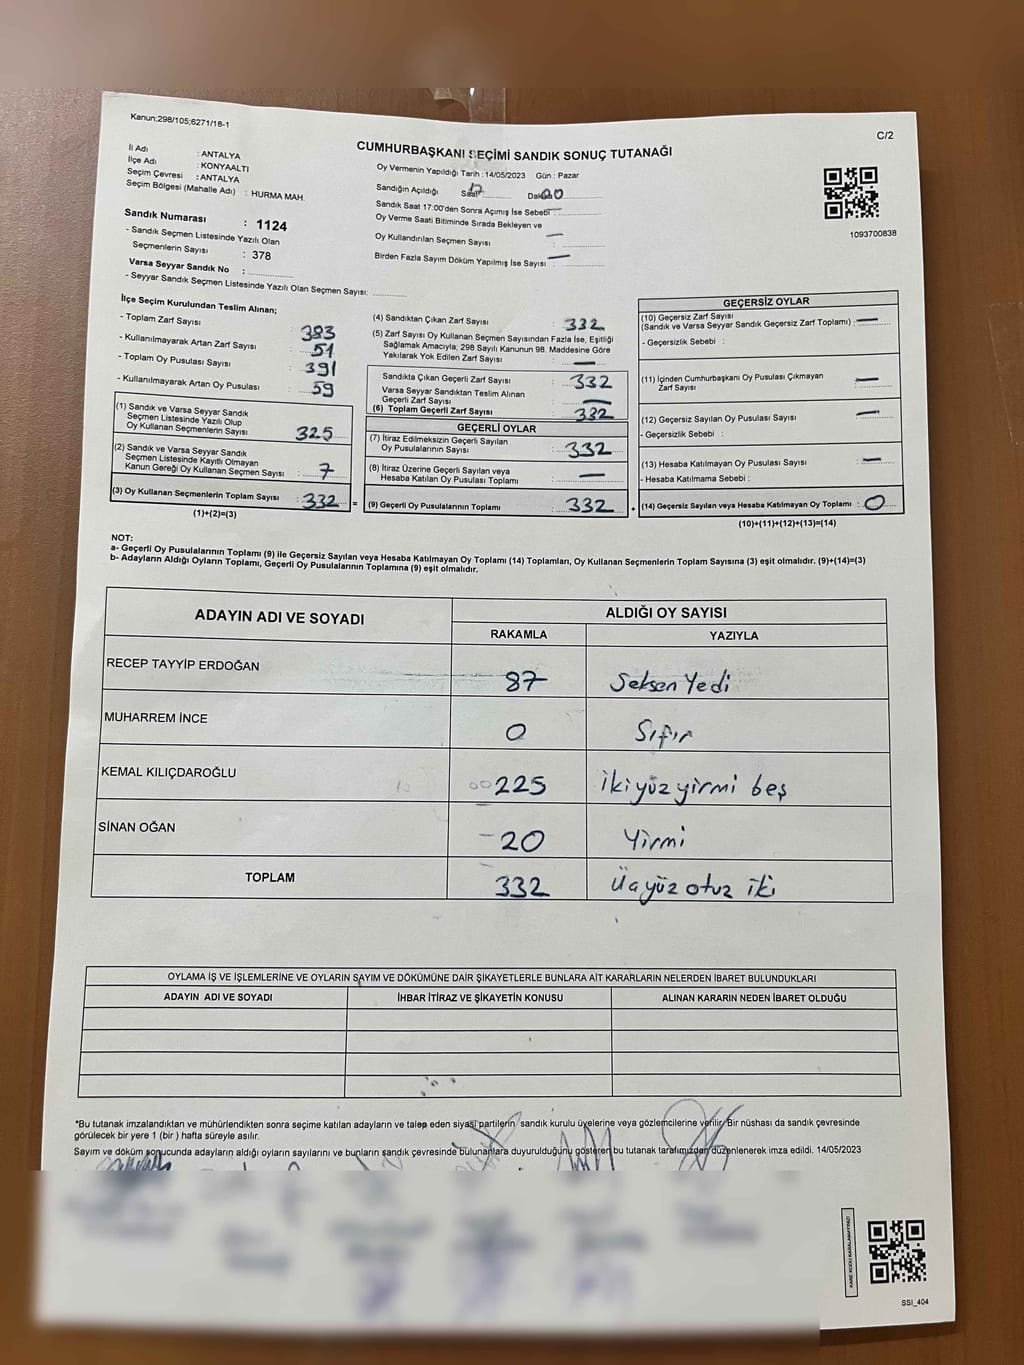 Kanun;298/105;6271/18-1
C/2
CUMHURBAŞKANI SEÇİMİ SANDIK SONUÇ TUTANAĞI
İl Adı : ANTALYA
İlçe Adı : KONYAALTI
Seçim Çevresi : ANTALYA
Seçim Bölgesi (Mahalle Adı) : HURMA MAH.
Oy Vermenin Yapıldığı Tarih :14/05/2023 Gün : Pazar
Sandığın Açıldığı Saat 17 Dakika 00
Sandık Saat 17:00'den Sonra Açımış İse Sebebi : —
Oy Verme Saati Bitiminde Sırada Bekleyen ve
Oy Kullandırılan Seçmen Sayısı : —
Birden Fazla Sayım Döküm Yapılmış İse Sayısı : —
1093700838
Sandık Numarası : 1124
- Sandık Seçmen Listesinde Yazılı Olan
Seçmenlerin Sayısı : 378
Varsa Seyyar Sandık No :
- Seyyar Sandık Seçmen Listesinde Yazılı Olan Seçmen Sayısı:
İlçe Seçim Kurulundan Teslim Alınan;
- Toplam Zarf Sayısı : 383
- Kullanılmayarak Artan Zarf Sayısı : 51
- Toplam Oy Pusulası Sayısı : 391
- Kullanılmayarak Artan Oy Pusulası : 59
(1) Sandık ve Varsa Seyyar Sandık
Seçmen Listesinde Yazılı Olup
Oy Kullanan Seçmenlerin Sayısı : 325
(2) Sandık ve Varsa Seyyar Sandık
Seçmen Listesinde Kayıtlı Olmayan
Kanun Gereği Oy Kullanan Seçmen Sayısı : 7
(3) Oy Kullanan Seçmenlerin Toplam Sayısı : 332 =
(1)+(2)=(3)
(4) Sandıktan Çıkan Zarf Sayısı : 332
(5) Zarf Sayısı Oy Kullanan Seçmen Sayısından Fazla İse, Eşitliği
Sağlamak Amacıyla; 298 Sayılı Kanunun 98. Maddesine Göre
Yakılarak Yok Edilen Zarf Sayısı : —
Sandıkta Çıkan Geçerli Zarf Sayısı : 332
Varsa Seyyar Sandıktan Teslim Alınan
Geçerli Zarf Sayısı : —
(6) Toplam Geçerli Zarf Sayısı : 332
GEÇERLİ OYLAR
(7) İtiraz Edilmeksizin Geçerli Sayılan
Oy Pusulalarının Sayısı : 332
(8) İtiraz Üzerine Geçerli Sayılan veya
Hesaba Katılan Oy Pusulası Toplamı : —
(9) Geçerli Oy Pusulalarının Toplamı : 332 +
GEÇERSİZ OYLAR
(10) Geçersiz Zarf Sayısı
(Sandık ve Varsa Seyyar Sandık Geçersiz Zarf Toplamı) : —
- Geçersizlik Sebebi :
(11) İçinden Cumhurbaşkanı Oy Pusulası Çıkmayan
Zarf Sayısı : —
(12) Geçersiz Sayılan Oy Pusulası Sayısı : —
- Geçersizlik Sebebi :
(13) Hesaba Katılmayan Oy Pusulası Sayısı : —
- Hesaba Katılmama Sebebi :
(14) Geçersiz Sayılan veya Hesaba Katılmayan Oy Toplamı : 0
(10)+(11)+(12)+(13)=(14)
NOT:
a- Geçerli Oy Pusulalarının Toplamı (9) ile Geçersiz Sayılan veya Hesaba Katılmayan Oy Toplamı (14) Toplamları, Oy Kullanan Seçmenlerin Toplam Sayısına (3) eşit olmalıdır. (9)+(14)=(3)
b- Adayların Aldığı Oyların Toplamı, Geçerli Oy Pusulalarının Toplamına (9) eşit olmalıdır.
ADAYIN ADI VE SOYADI ALDIĞI OY SAYISI
RAKAMLA YAZIYLA
RECEP TAYYİP ERDOĞAN 87 Seksen Yedi
MUHARREM İNCE 0 Sıfır
KEMAL KILIÇDAROĞLU 225 İkiyüz yirmi beş
SİNAN OĞAN 20 Yirmi
TOPLAM 332 Üçyüz otuz iki
OYLAMA İŞ VE İŞLEMLERİNE VE OYLARIN SAYIM VE DÖKÜMÜNE DAİR ŞİKAYETLERLE BUNLARA AİT KARARLARIN NELERDEN İBARET BULUNDUKLARI
ADAYIN ADI VE SOYADI İHBAR İTİRAZ VE ŞİKAYETİN KONUSU ALINAN KARARIN NEDEN İBARET OLDUĞU
*Bu tutanak imzalandıktan ve mühürlendikten sonra seçime katılan adayların ve talep eden siyasi partilerin sandık kurulu üyelerine veya gözlemcilerine verilir. Bir nüshası da sandık çevresinde
görülecek bir yere 1 (bir ) hafta süreyle asılır.
Sayım ve döküm sonucunda adayların aldığı oyların sayılarını ve bunların sandık çevresinde bulunanlara duyurulduğunu gösteren bu tutanak tarafımızdan düzenlenerek imza edildi. 14/05/2023
KARE KODU KARALAMAYINIZ!
SSI_404